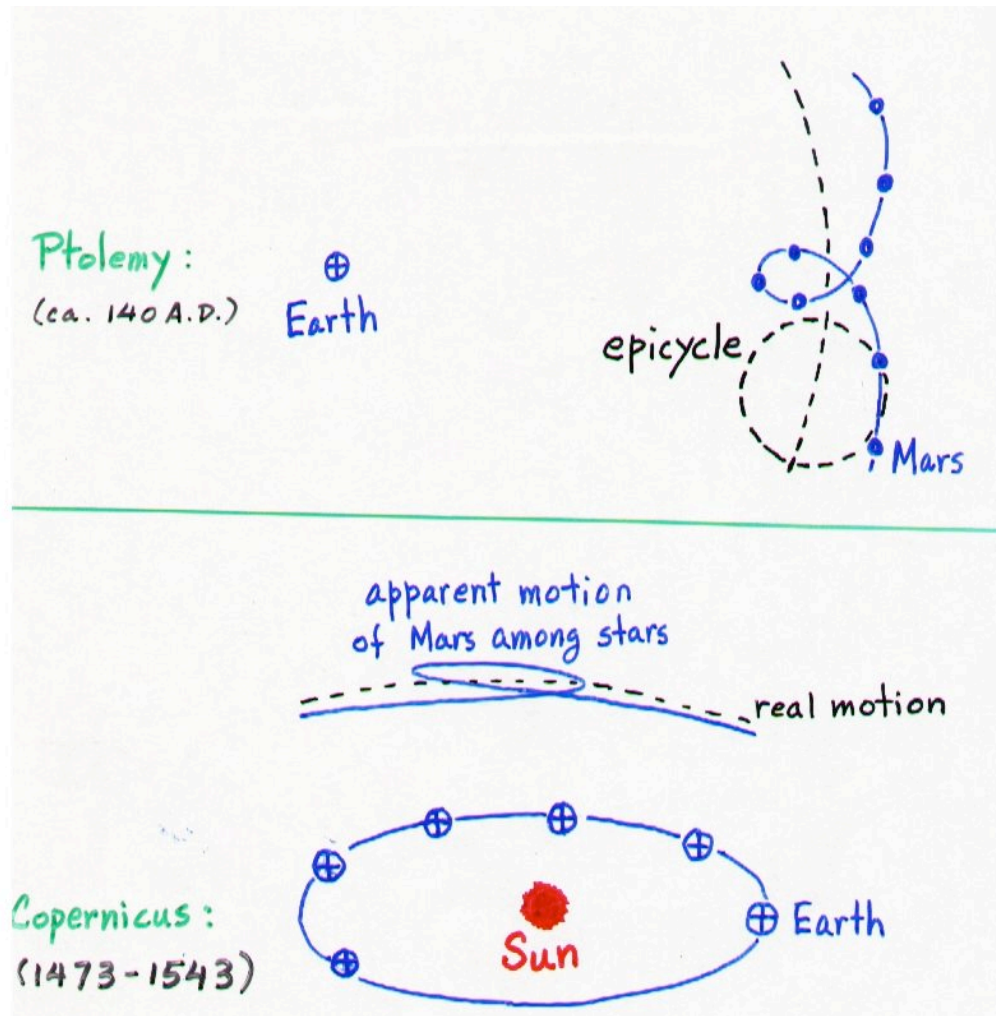 Ptolemy:
(ca. 140 A.D.)
Earth
epicycle
Mars
apparent motion
of Mars among stars
real motion
Copernicus:
(1473-1543)
Sun
Earth